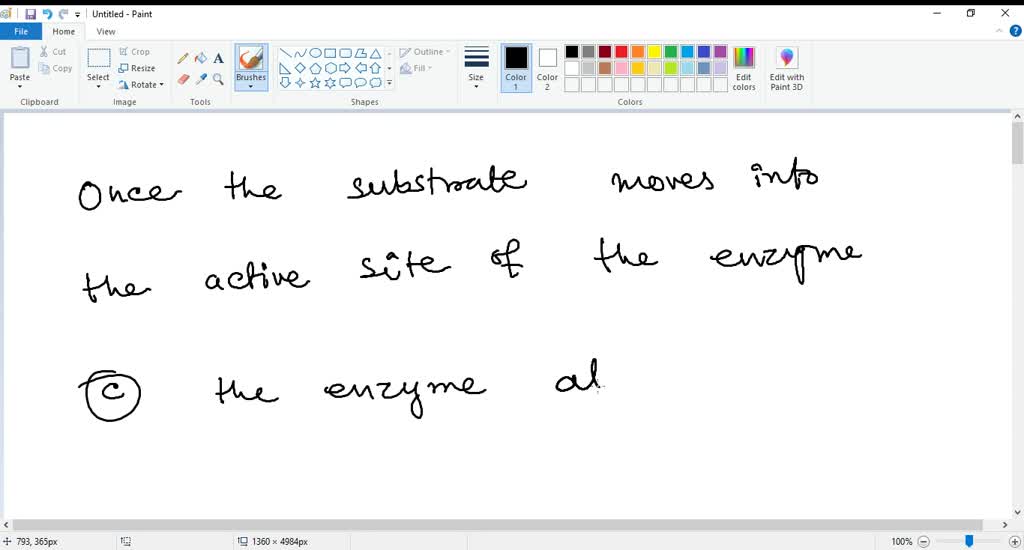 Untitled - Paint
File Home View
Paste Cut Copy Select Crop Resize Rotate Brushes Outline Fill Size Color 1 Color 2 Edit colors Edit with Paint 3D
Clipboard Image Tools Shapes Colors
Once the substrate moves into
the active site of the enzyme
C the enzyme al
793, 365px 1360 × 4984px 100%